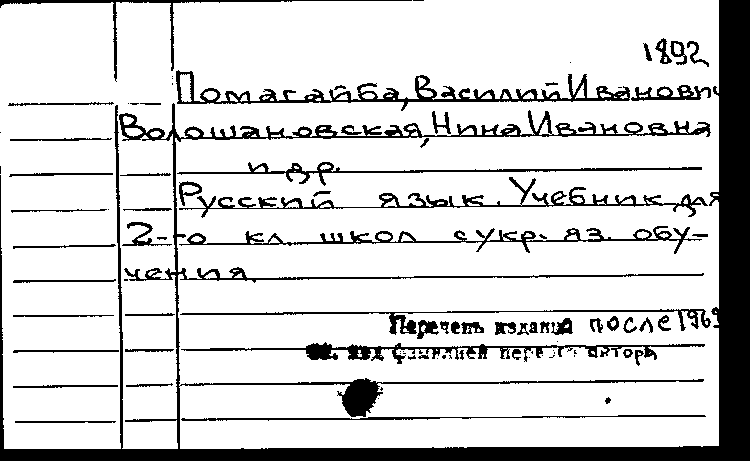 1892
Помагайба, Василий Иванович
Волошановская, Нина Ивановна
и др.
Русский язык. Учебник для
2-го кл. школ с укр. яз. обу-
чения.
Перечень изданий после 1969
см. под фамилией первого автора